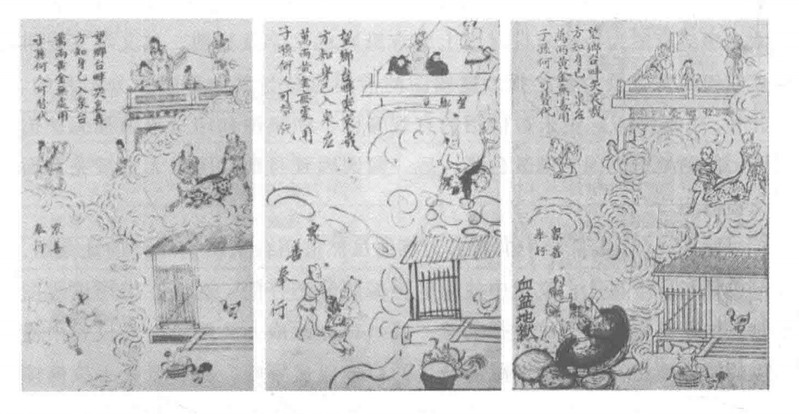 望鄉台畔哭哀哉
方知身已入泉台
萬兩黃金無處用
子孫何人可替代
衆善
奉行
望鄉台畔哭哀哉
方知身已入泉台
萬兩黃金無處用
子孫何人可替
望鄉
衆善奉行
望鄉台畔哭哀哉
方知身已入泉台
萬兩黃金無處用
子孫何人可替代
衆善
奉行
血盆地獄